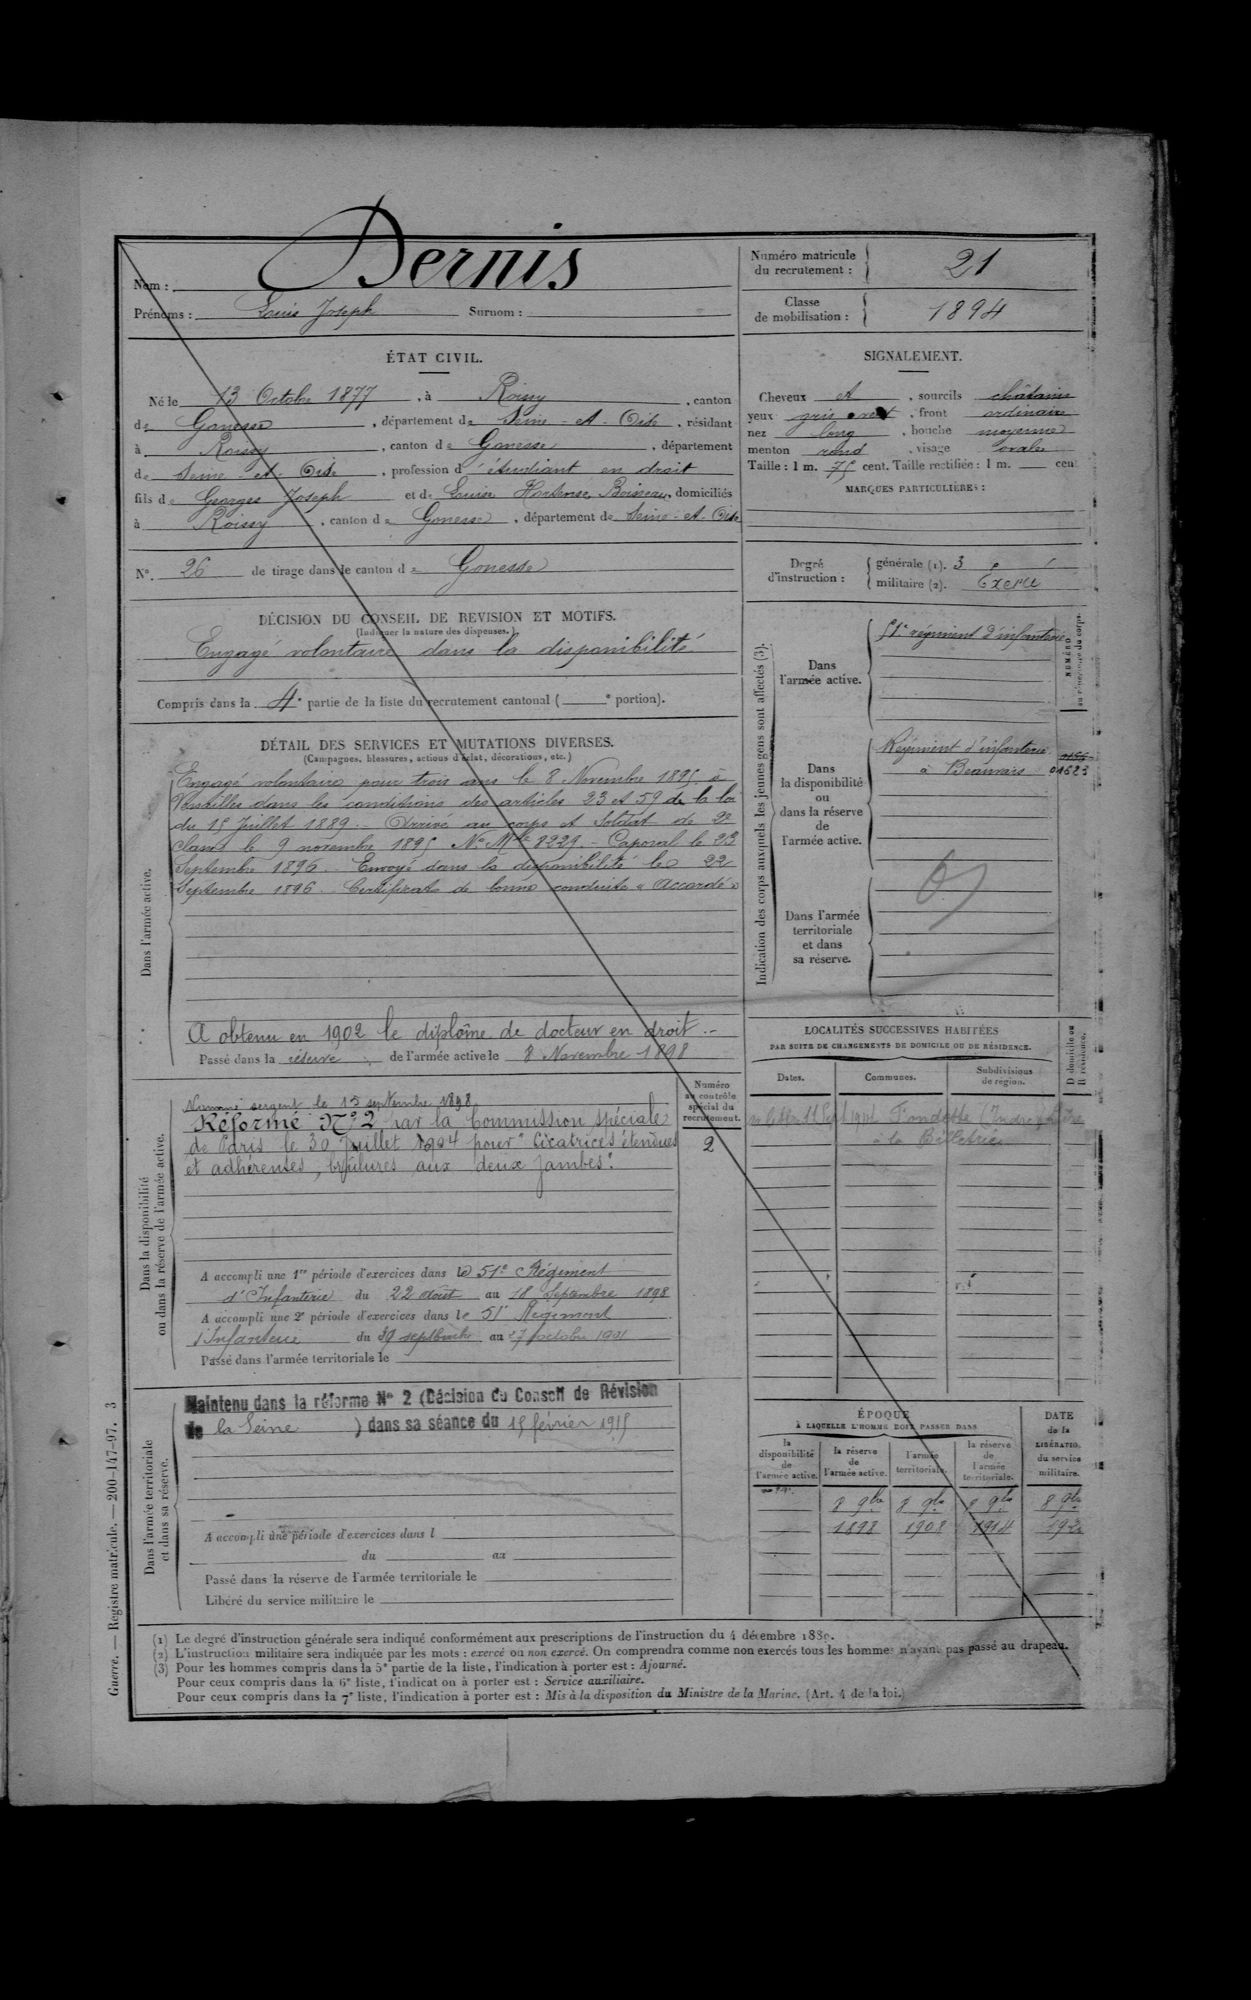 Nom : Dernis
Prénoms : Louis Joseph Surnom :
Numéro matricule du recrutement : 21
Classe de mobilisation : 1894
ÉTAT CIVIL.
Né le 13 Octobre 1877, à Roissy, canton
de Gonesse, département de Seine-et-Oise, résidant
à Roissy, canton de Gonesse, département
de Seine-et-Oise, profession d'étudiant en droit
fils de Georges Joseph et de Louise Hortense Boisseau, domiciliés
à Roissy, canton de Gonesse, département de Seine-et-Oise
N°. 26 de tirage dans le canton de Gonesse
SIGNALEMENT.
Cheveux et, sourcils châtains
yeux gris vert, front ordinaire
nez long, bouche moyenne
menton rond, visage ovale
Taille : 1 m. 75 cent. Taille rectifiée : 1 m. cent
MARQUES PARTICULIÈRES :
Degré d'instruction : générale (1). 3
militaire (2). Exercé
DÉCISION DU CONSEIL DE REVISION ET MOTIFS.
(Indiquer la nature des dispenses.)
Engagé volontaire dans la disponibilité
Compris dans la 4e partie de la liste du recrutement cantonal ( e portion).
DÉTAIL DES SERVICES ET MUTATIONS DIVERSES.
(Campagnes, blessures, actions d'éclat, décorations, etc.)
Dans l'armée active.
Engagé volontaire pour trois ans le 8 Novembre 1895 à
Versailles dans les conditions des articles 23 et 59 de la loi
du 15 Juillet 1889. - Arrivé au corps et Soldat de 2e
classe le 9 novembre 1895 No Mle 8221. - Caporal le 23
Septembre 1896. - Envoyé dans la disponibilité le 22
Septembre 1896. Certificat de bonne conduite "Accordé"
A obtenu en 1902 le diplôme de docteur en droit.-
Passé dans la réserve de l'armée active le 8 Novembre 1898
Indication des corps auxquels les jeunes gens sont affectés (3).
NUMÉRO
Dans l'armée active.
51e régiment d'infanterie
Dans la disponibilité ou dans la réserve de l'armée active.
Régiment d'infanterie
à Beauvais 01623
Dans l'armée territoriale et dans sa réserve.
LOCALITÉS SUCCESSIVES HABITÉES
PAR SUITE DE CHANGEMENTS DE DOMICILE OU DE RÉSIDENCE.
D domicile ou R résidence.
Dates. Communes. Subdivisions de région.
Dans la disponibilité ou dans la réserve de l'armée active.
Numéro au contrôle spécial du recrutement.
2
Nommé sergent le 15 septembre 1898.
Réformé No 2 par la Commission spéciale
de Paris le 30 Juillet 1904 pour "Cicatrices étendues
et adhérentes, brûlures aux deux jambes".
A accompli une 1re période d'exercices dans le 51e Régiment
d'Infanterie du 22 août au 18 Septembre 1898
A accompli une 2e période d'exercices dans le 51e Régiment
d'Infanterie du 29 septembre au 27 octobre 1901
Passé dans l'armée territoriale le
Dans l'armée territoriale et dans sa réserve.
Maintenu dans la réforme No 2 (Décision du Conseil de Révision
de la Seine ) dans sa séance du 15 février 1915
A accompli une période d'exercices dans l
du au
Passé dans la réserve de l'armée territoriale le
Libéré du service militaire le
ÉPOQUE
À LAQUELLE L'HOMME DOIT PASSER DANS
la disponibilité de l'armée active. la réserve de l'armée active. l'armée territoriale. la réserve de l'armée territoriale.
DATE de la LIBÉRATION du service militaire.
8 9bre 8 9bre 8 9bre 8 9bre
1898 1908 1914
(1) Le degré d'instruction générale sera indiqué conformément aux prescriptions de l'instruction du 4 décembre 1889.
(2) L'instruction militaire sera indiquée par les mots : exercé ou non exercé. On comprendra comme non exercés tous les hommes n'ayant pas passé au drapeau.
(3) Pour les hommes compris dans la 5e partie de la liste, l'indication à porter est : Ajourné.
Pour ceux compris dans la 6e liste, l'indication à porter est : Service auxiliaire.
Pour ceux compris dans la 7e liste, l'indication à porter est : Mis à la disposition du Ministre de la Marine. (Art. 4 de la loi.)
Guerre. — Registre matricule. — 200-147-97. 3